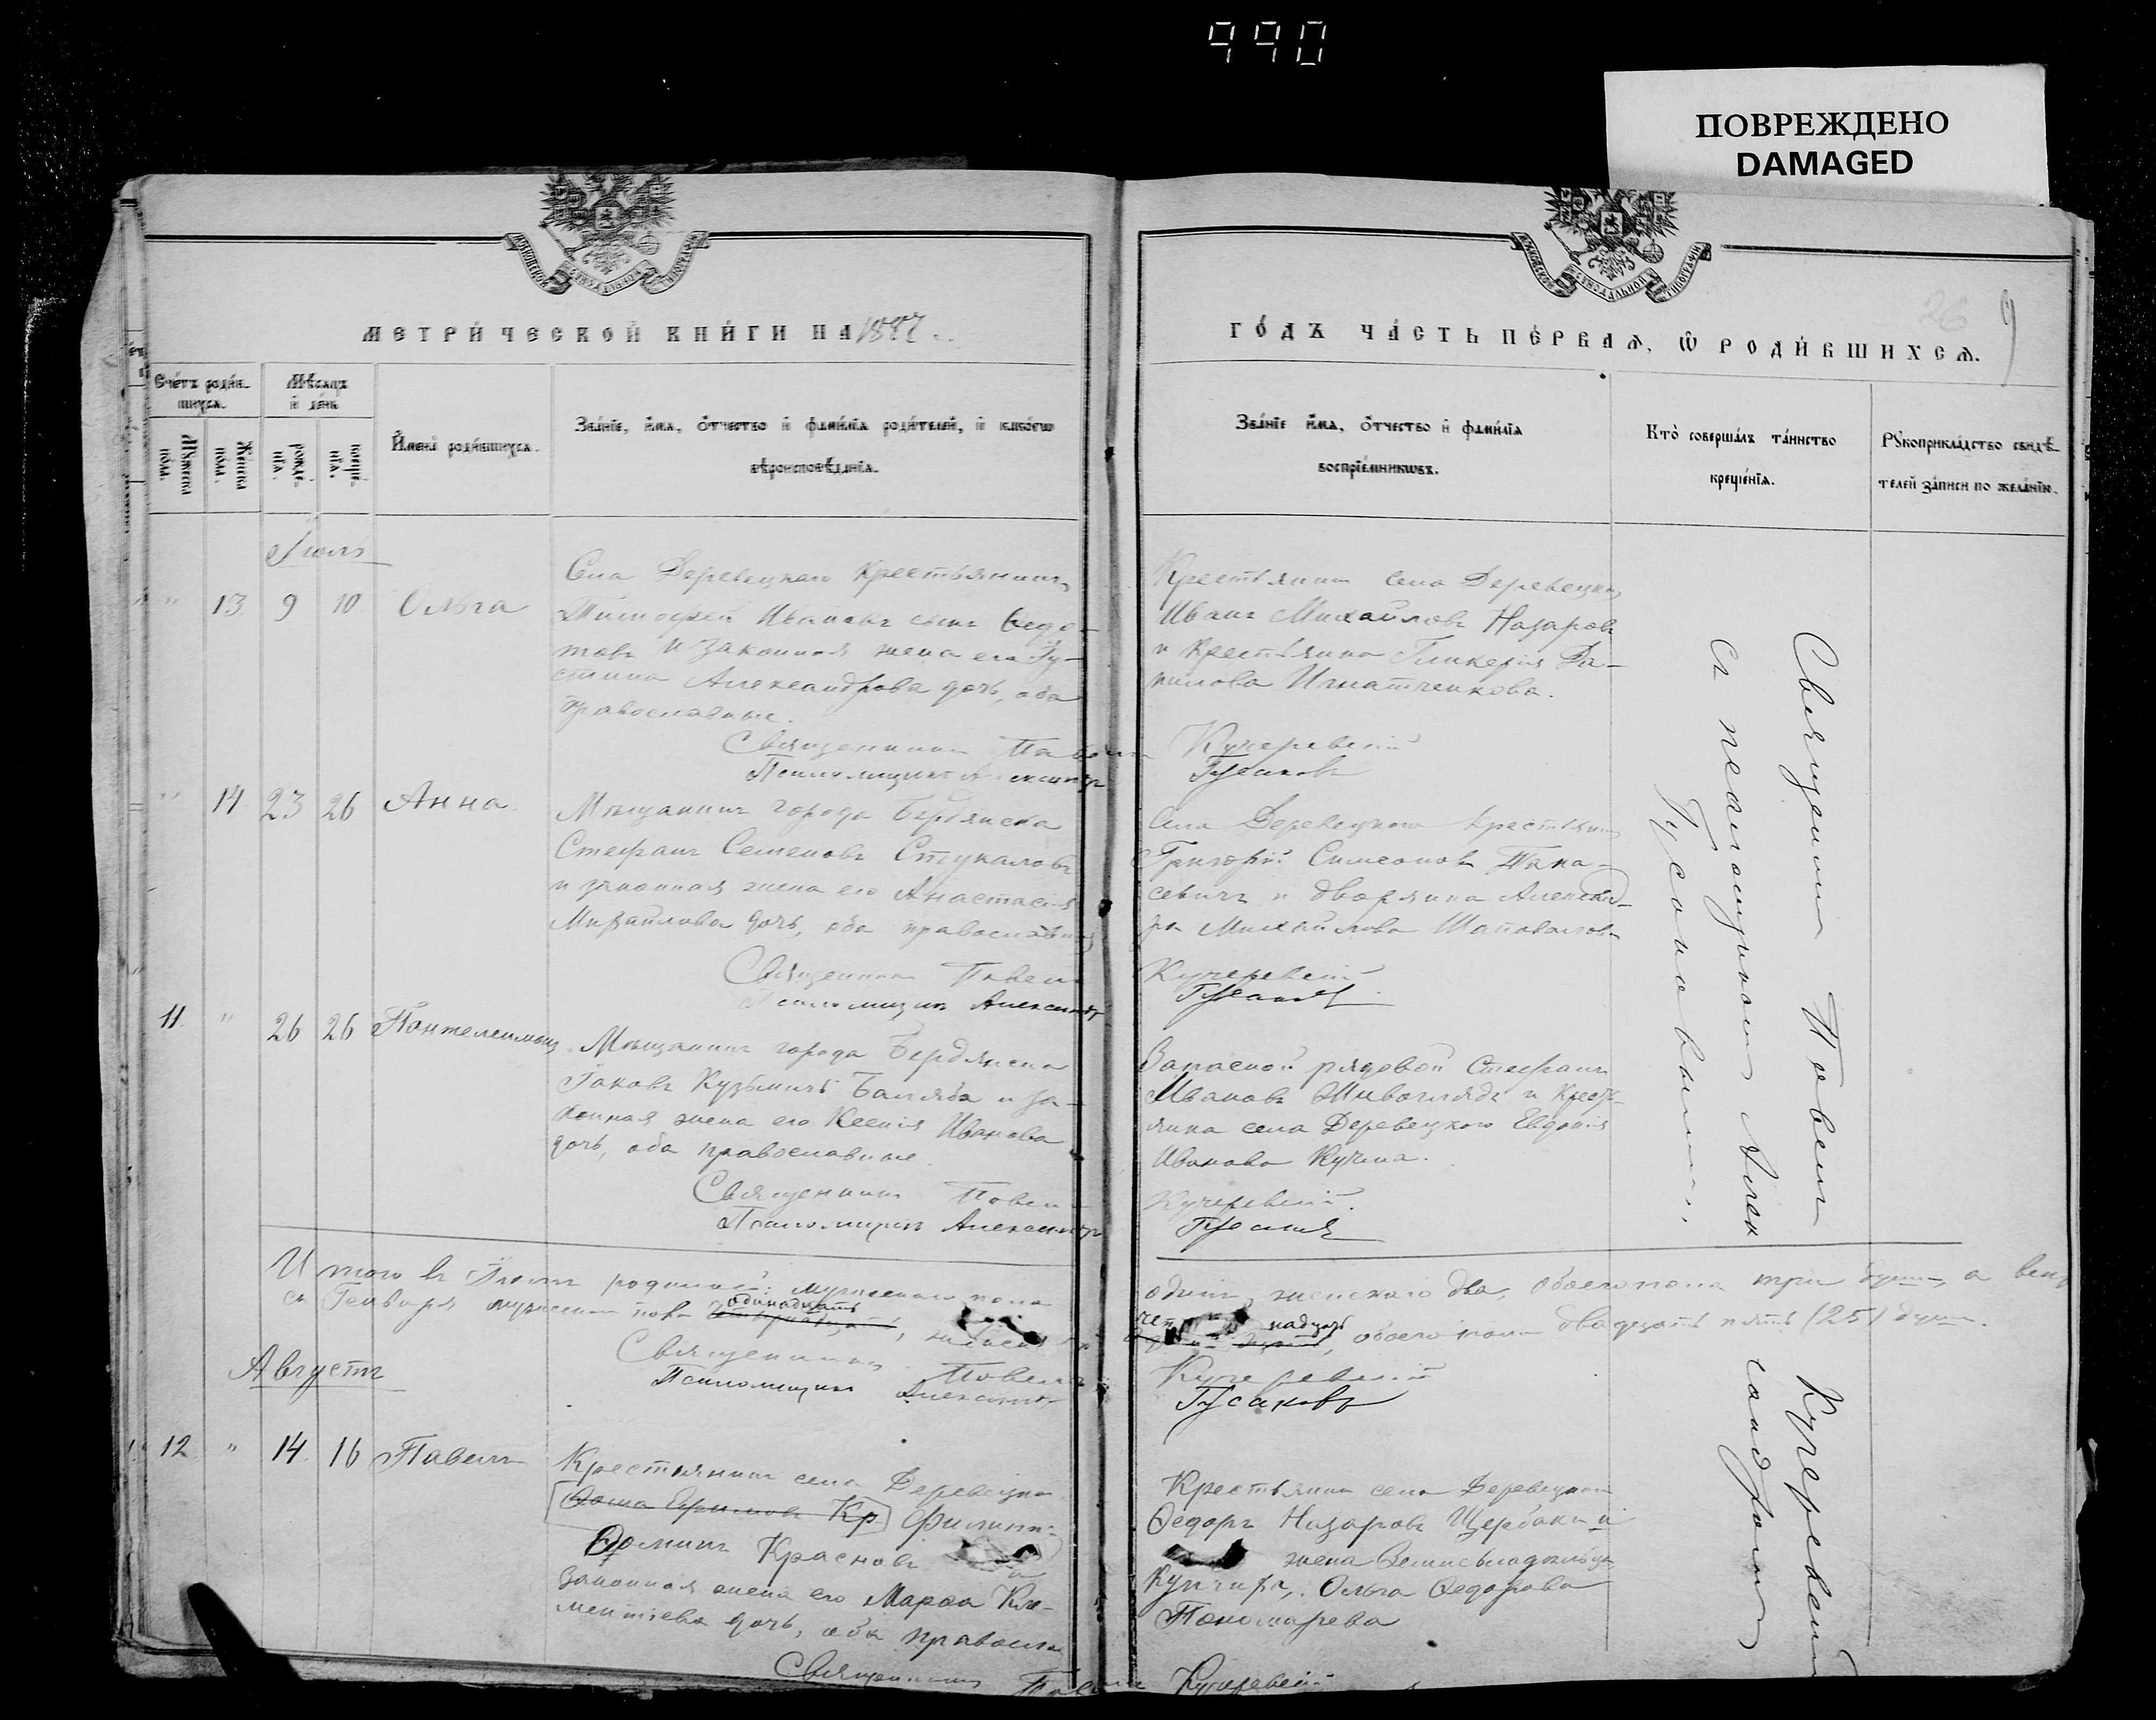 990
ПОВРЕЖДЕНО
DAMAGED
МЕТРИЧЕСКОЙ КНИГИ НА 1887
ГОДЪ ЧАСТЬ ПЕРВАЯ, Ѡ РОДИВШИХСЯ.
26
9
Счетъ родившихся.
Мѣсяцъ и день
Мужеска пола.
Женска пола.
рожденія.
крещенія.
Имена родившихся.
Званіе, имя, отчество и фамилія родителей, и какогѡ
вѣроисповѣданія.
Званіе имя, отчество и фамилія
воспріемникѡвъ.
Кто совершалъ таинство
крещенія.
Рукоприкладство свидѣ-
телей записи по желанію.
Іюль
" 13 9 10 Ольга
Села Деревецкаго Крестьянинъ
Тимофей Ивановъ сынъ Ѳедо-
товъ и законная жена его Іу-
стина Александрова дочь, оба
православные.
Священникъ Павелъ
Псаломщикъ Александръ
Крестьянин села Деревецкаго
Иванъ Михайловъ Назаровъ
и крестьянка Гликерія Да-
нилова Игнатченкова.
Кучеревскій
Гусаковъ
" 14 23 26 Анна
Мѣщанинъ города Бердянска
Стефанъ Семеновъ Стукаловъ
и законная жена его Анастасія
Михайлова дочь, оба православны
Священник Павелъ
Псаломщикъ Александръ
Села Деревецкаго крестьянинъ
Григорій Симеоновъ Пана-
севичъ и дворянка Александ-
ра Михайлова Шаповалова
Кучеревскій
Гусаковъ
11 " 26 26 Пантелеимонъ
Мѣщанинъ города Бердянска
Іаковъ Кузьмичъ Баляба и за-
конная жена его Ксенія Иванова
дочь, оба православные
Священникъ Павелъ
Псаломщикъ Александръ
Запасной рядовой Стефанъ
Ивановъ Живоглядъ и крест-
янка села Деревецкаго Евдокія
Иванова Кучма.
Кучеревскій
Гусаковъ
Итого въ Іюлѣ родилось: мужескаго пола
одинъ, женскаго два, обоего пола три души, а всего
съ Генваря мужескаго пола одинадцать, женскаго
надцать, обоего пола двадцать пять (25) душъ.
Священникъ Павелъ
Псаломщикъ Александръ
Кучеревскій
Гусаковъ
Августъ
12 " 14 16 Павелъ
Крестьянинъ села Деревецкаго
Филиппъ
Ѳоминъ Красновъ
законная жена его Марѳа Кле-
ментіева дочь, оба правосла
Священникъ Павелъ
Крестьянинъ села Деревецкаго
Ѳедоръ Назаровъ Щербакъ и
жена
Ольга Ѳедорова
Пономарева
Кучеревскій
Священникъ Павелъ Кучеревскій
съ псаломщикомъ Александромъ
Гусаковымъ.